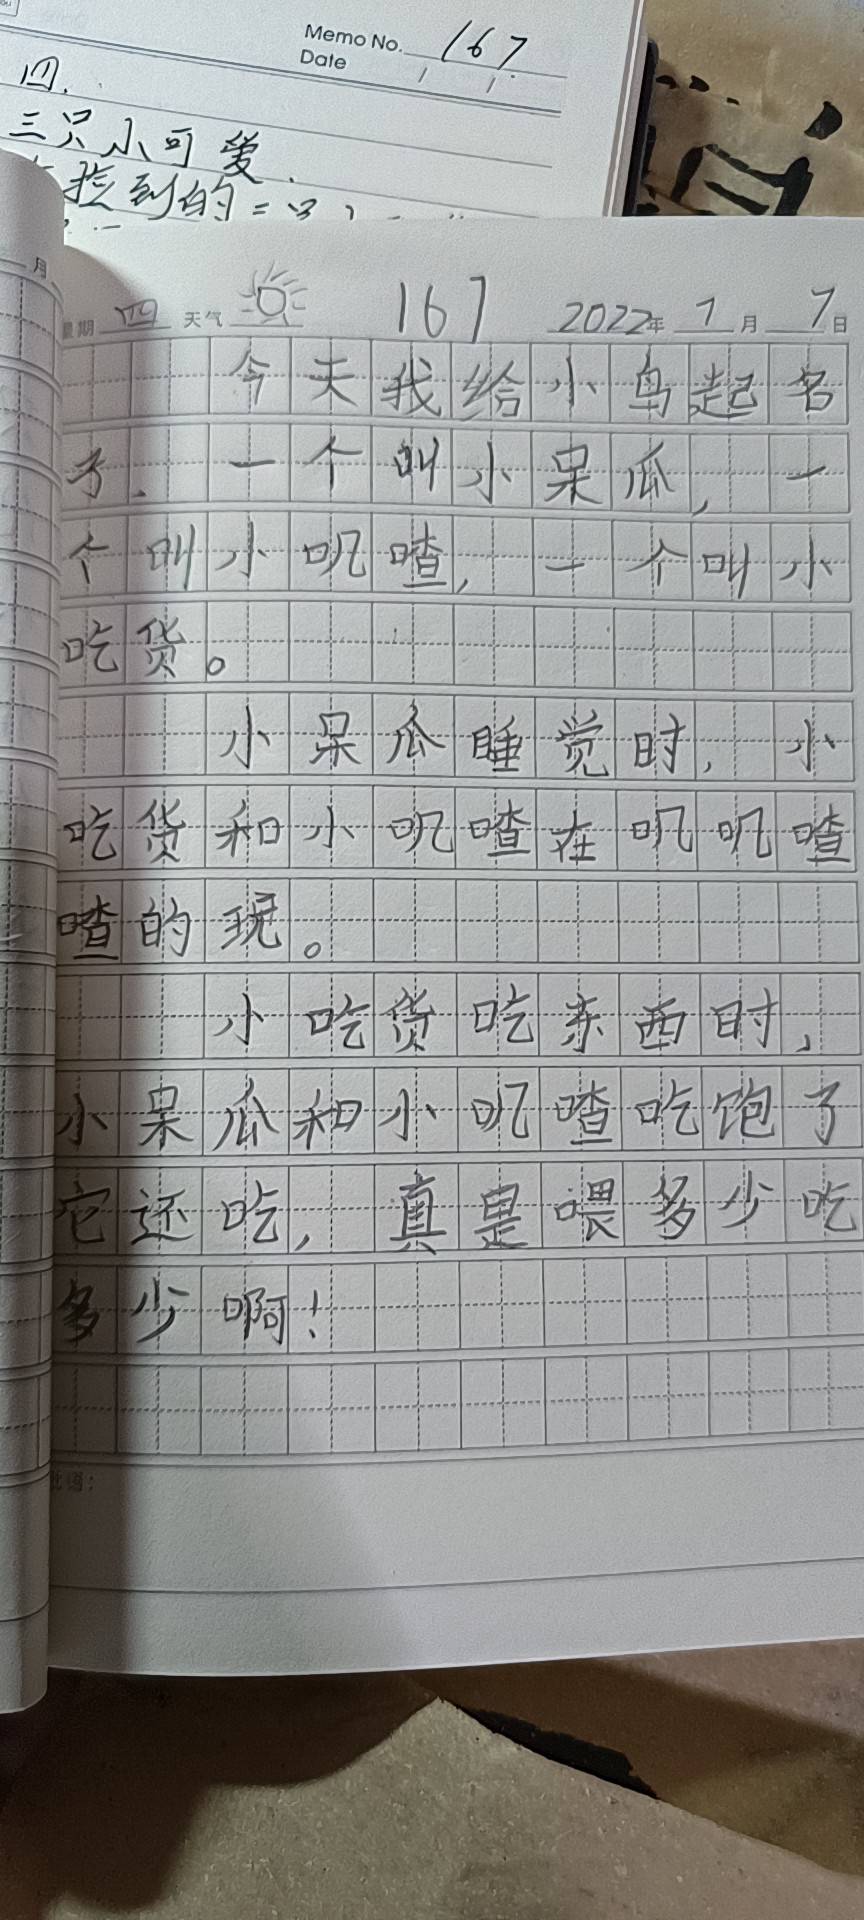 Memo No. 167
Date / /
四.
三只小可爱.
捡到的二只小
月
星期 四 天气 167 2022年 7 月 7日
今天我给小鸟起名
了.一个叫小呆瓜,一
个叫小叽喳,一个叫小
吃货。
小呆瓜睡觉时,小
吃货和小叽喳在叽叽喳
喳的玩。
小吃货吃东西时,
小呆瓜和小叽喳吃饱了
它还吃,真是喂多少吃
多少啊!
批语: